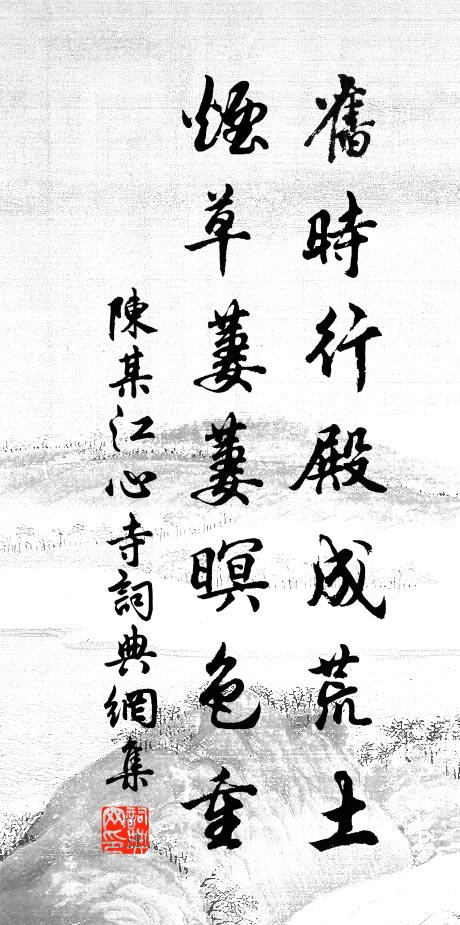 舊時行殿成荒土
煙草萋萋暝色重
陳某江心寺詞典網集